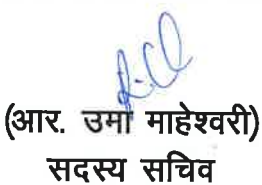 (आर. उमा माहेश्वरी)
सदस्य सचिव